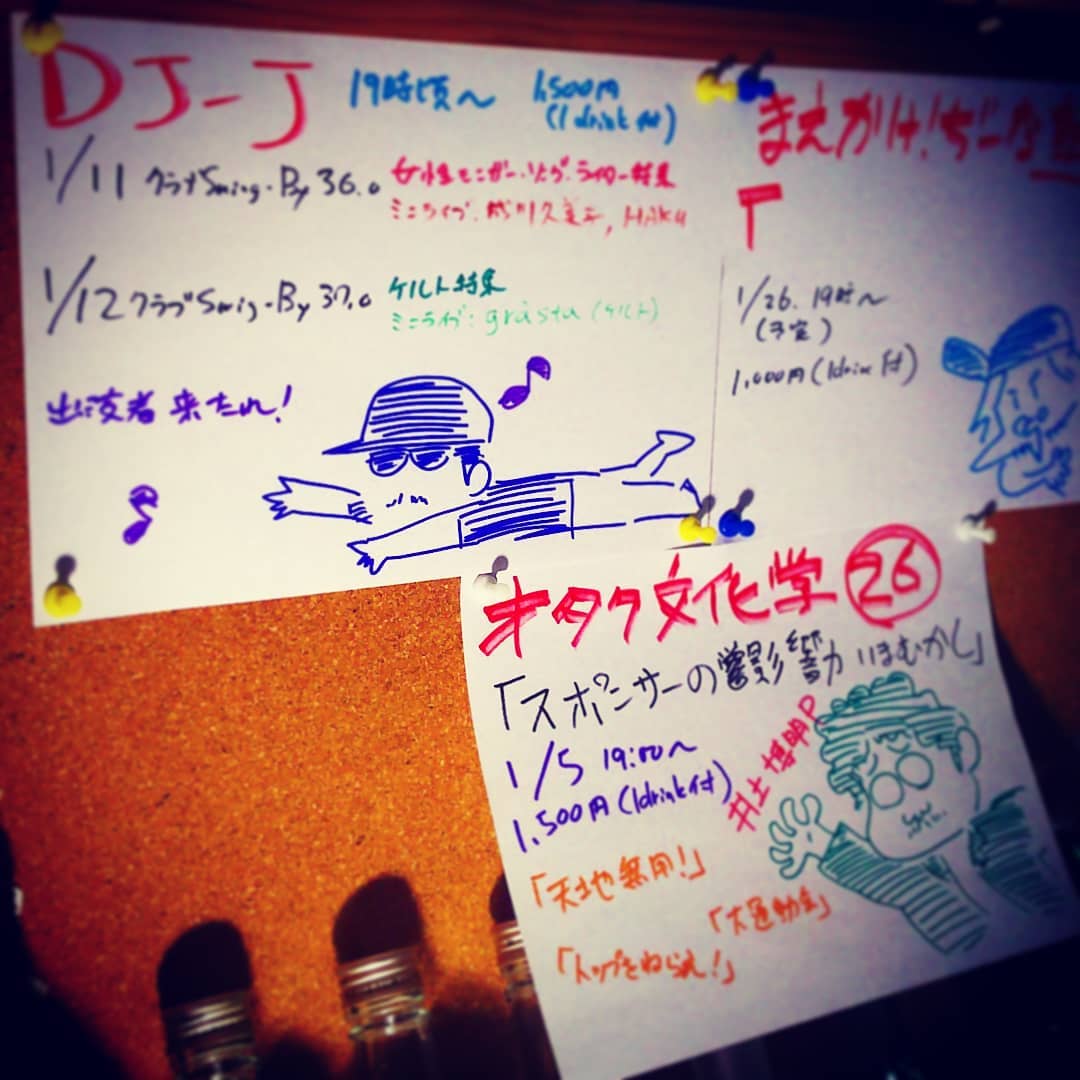 DJ-J 19時頃〜 1,500円
(1drink付)
1/11 クラブSwing-By 36.0 女性シンガー・ソング・ライター特集
ミニライブ: 久美子, HAKU
1/12 クラブSwing-By 37.0 ケルト特集
ミニライブ: grasta (ケルト)
出演者 来たれ!
まえかけ!ぢーな
1/26. 19時〜
(予定)
1,000円(1drink付)
オタク文化学 26
「スポンサーの影響力 いまむかし」
1/5 19:00〜
1,500円(1drink付)
井上博明P
「天地無用!」
「大運動会」
「トップをねらえ!」